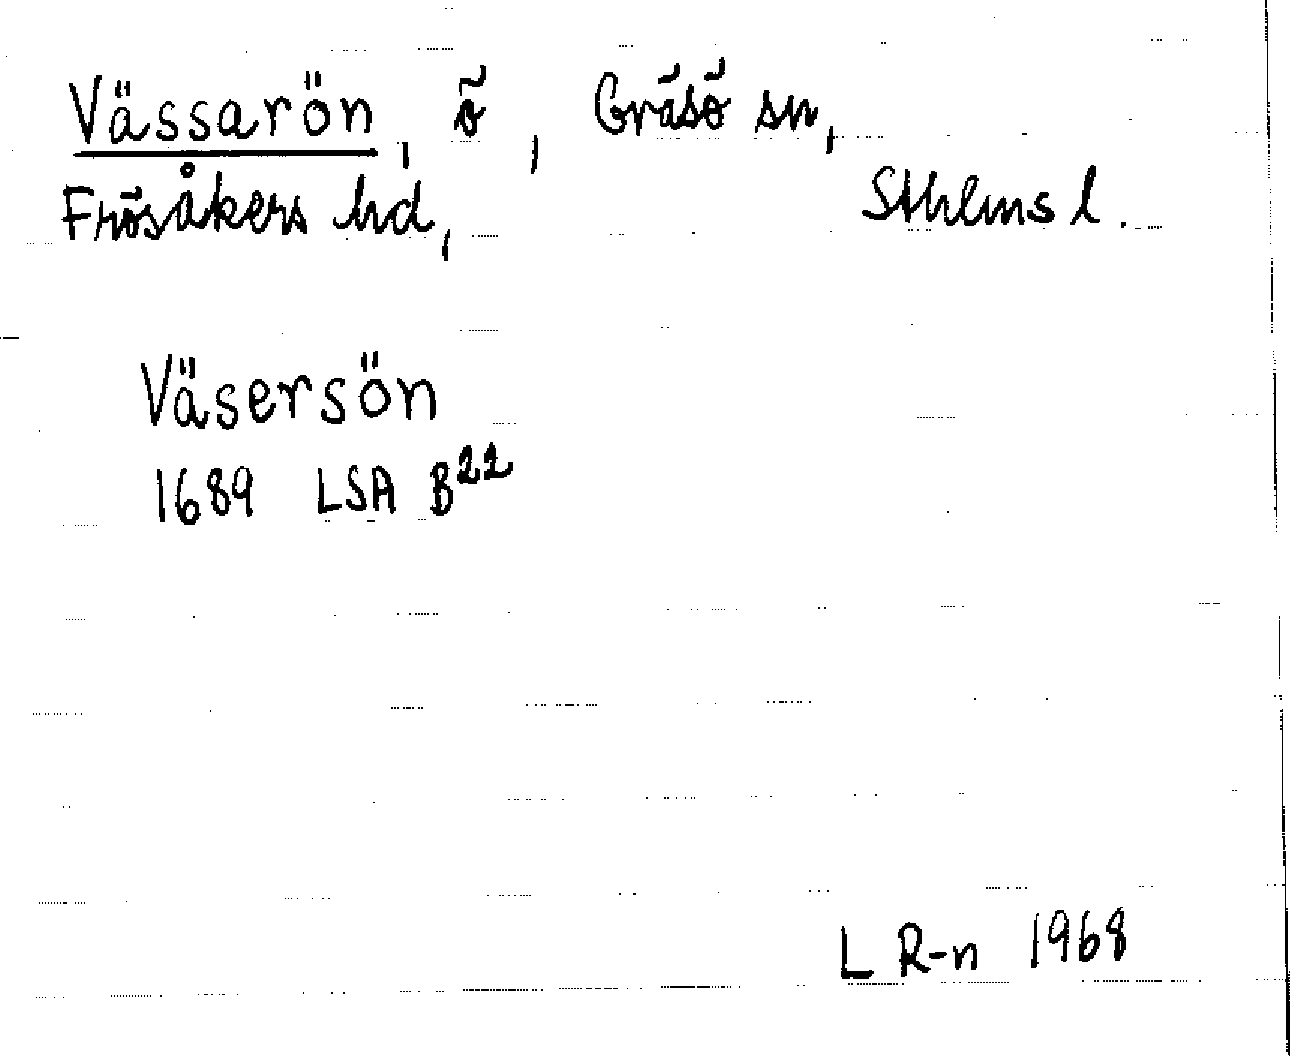 Vässarön, ö, Gräsö sn,
Frösåkers hd, Sthlms l.
Väsersön
1689 LSA B²²
L R-n 1968